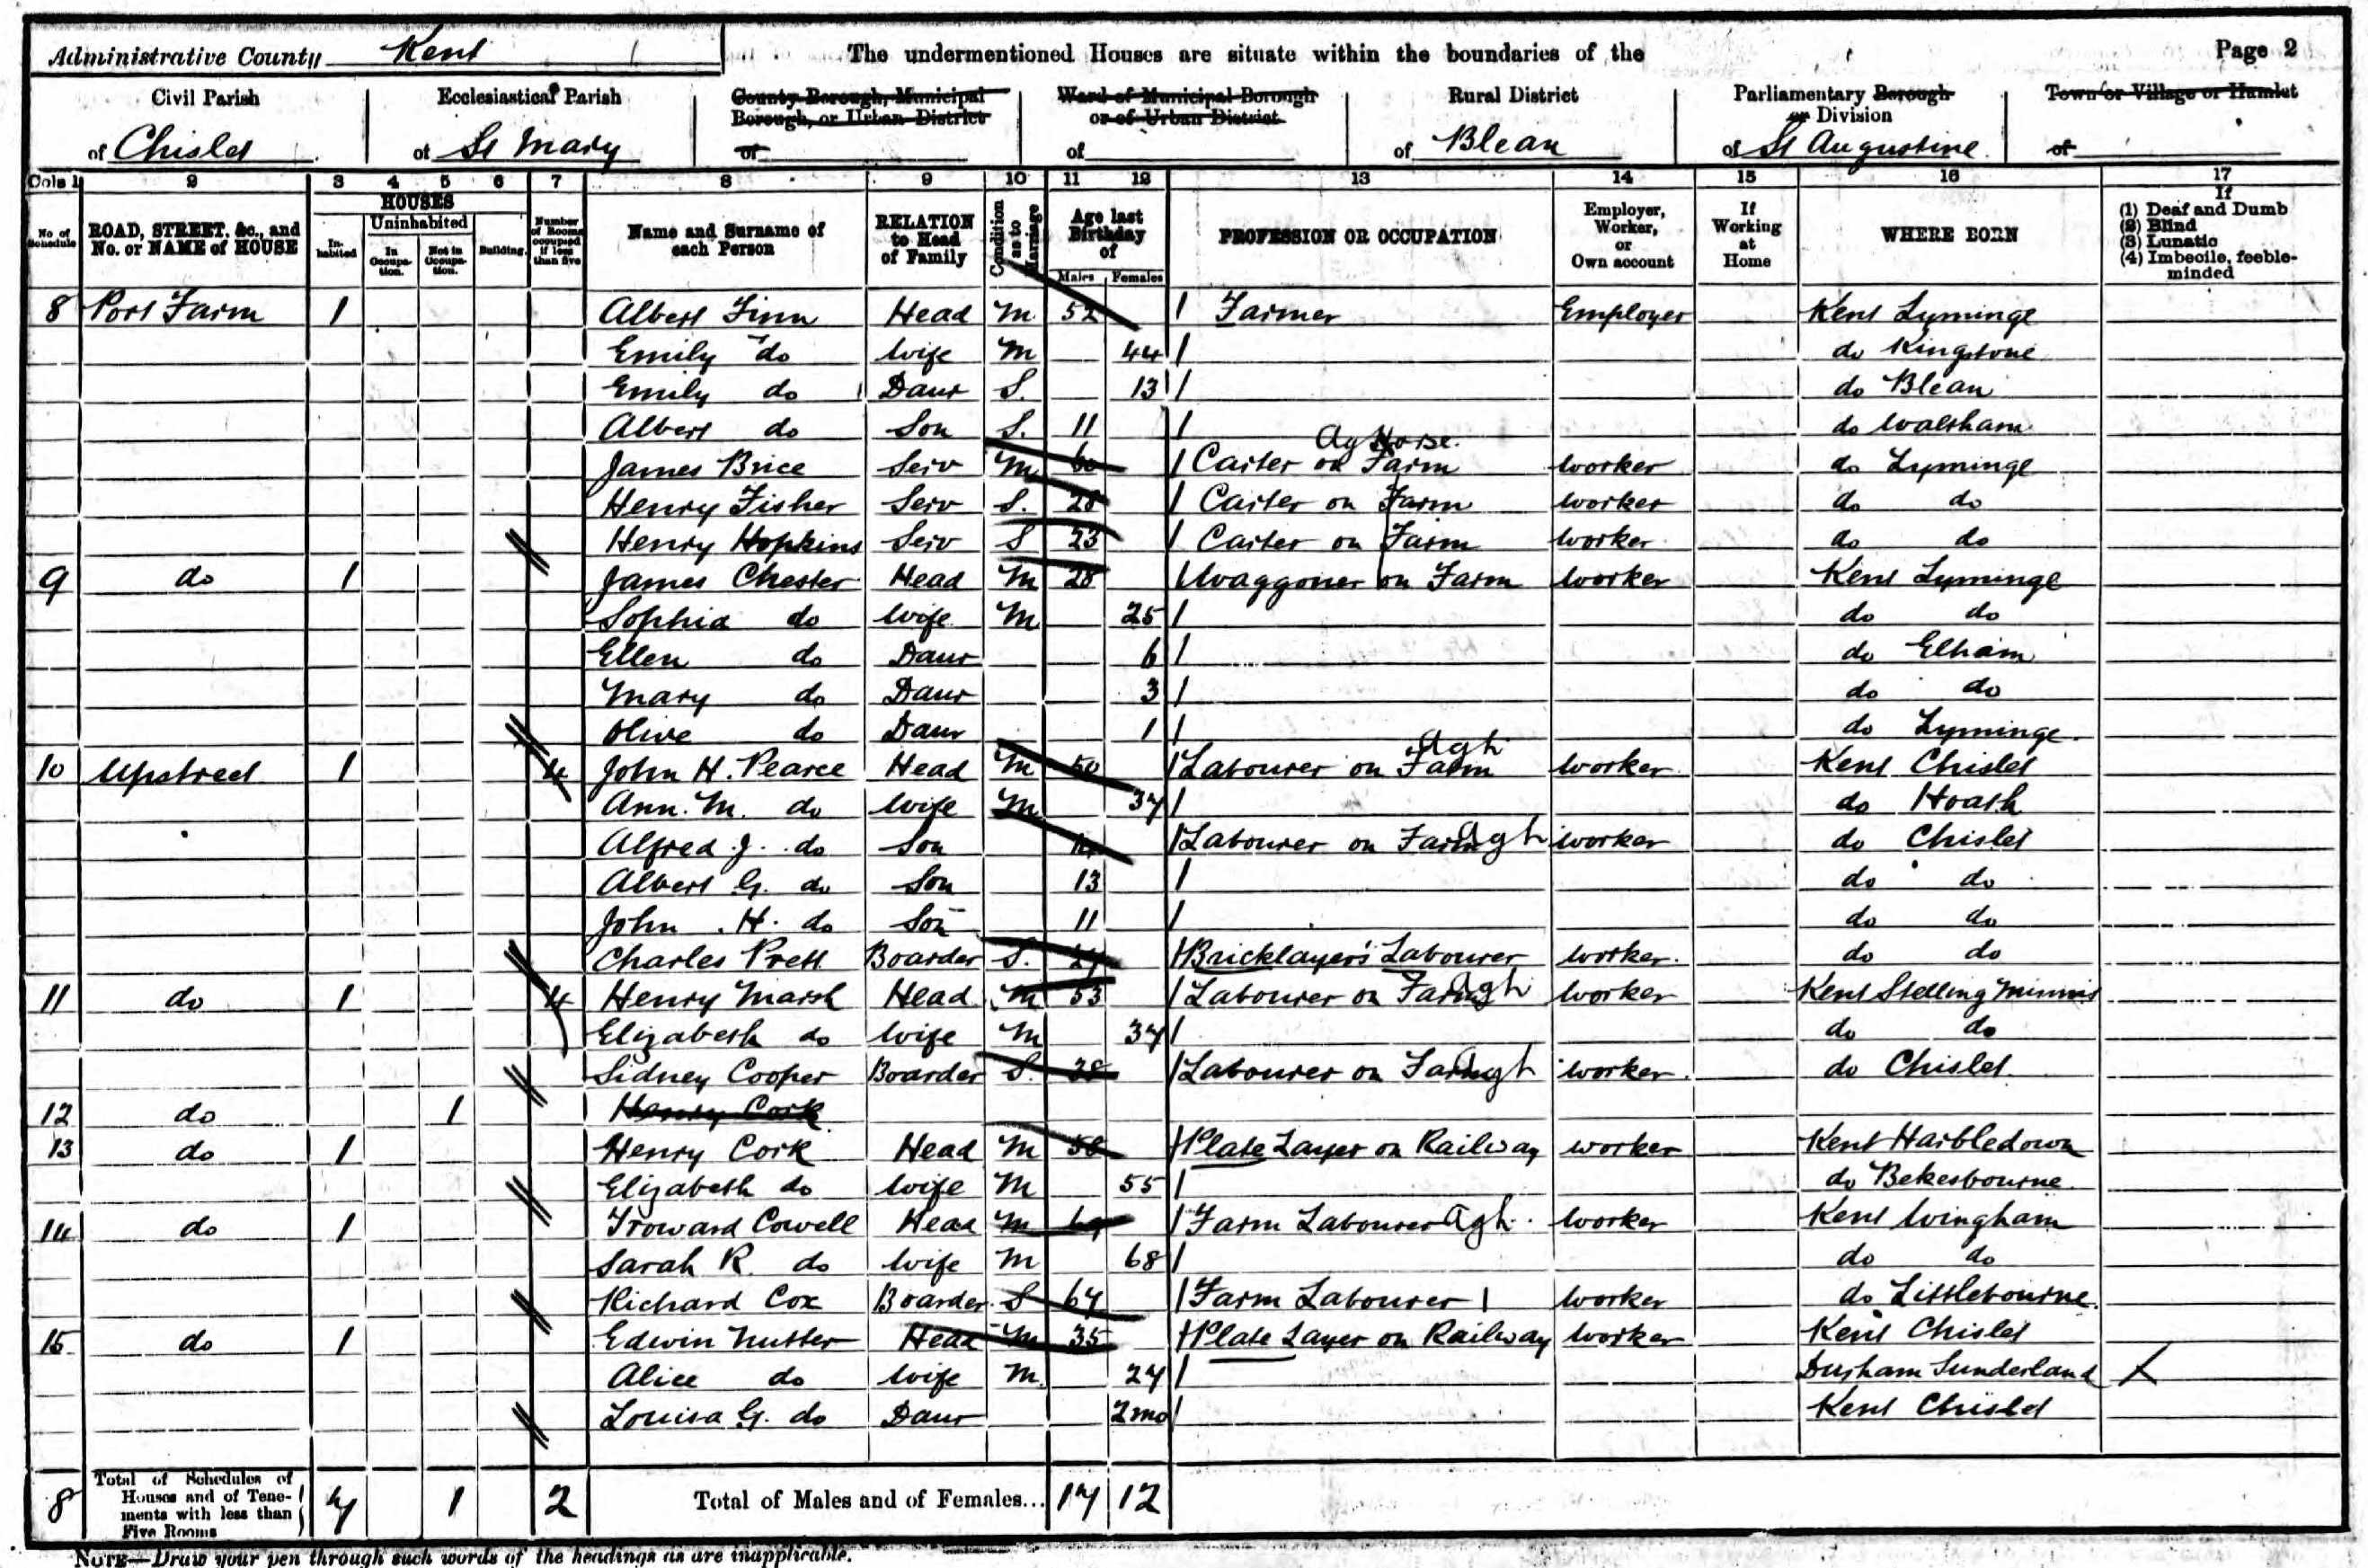 Administrative County Kent The undermentioned Houses are situate within the boundaries of the Page 2
Civil Parish Ecclesiastical Parish County Borough, Municipal Borough, or Urban District Ward of Municipal Borough or of Urban District Rural District Parliamentary Borough or Division Town or Village or Hamlet
of Chislet of St Mary of of of Blean of St Augustine of
Cols 1 2 3 4 5 6 7 8 9 10 11 12 13 14 15 16 17
No. of Schedule ROAD, STREET, &c., and No. or NAME of HOUSE HOUSES Inhabited Uninhabited In Occupation. Not in Occupation. Building. Number of Rooms occupied if less than five Name and Surname of each Person RELATION to Head of Family Condition as to Marriage Age last Birthday of Males Females PROFESSION OR OCCUPATION Employer, Worker, or Own account If Working at Home WHERE BORN If (1) Deaf and Dumb (2) Blind (3) Lunatic (4) Imbecile, feeble-minded
8 Port Farm 1 Albert Finn Head M 52 Farmer Employer Kent Lyminge
Emily do Wife M 44 do Kingstone
Emily do Daur S. 13 do Blean
Albert do Son S. 11 do Waltham
James Brice Serv M 60 Carter on Farm Ag Horse. Worker do Lyminge
Henry Fisher Serv S. 28 Carter on Farm Worker do do
Henry Hopkins Serv S 23 Carter on Farm Worker do do
9 do 1 James Chester Head M 28 Waggoner on Farm Worker Kent Lyminge
Sophia do Wife M 25 do do
Ellen do Daur 6 do Elham
Mary do Daur 3 do do
Olive do Daur 1 do Lyminge
10 Upstreet 1 4 John H. Pearce Head M 50 Labourer on Farm Agl Worker Kent Chislet
Ann. M. do Wife M 37 do Hoath
Alfred J. do Son 14 Labourer on Farm Agl Worker do Chislet
Albert G. do Son 13 do do
John H. do Son 11 do do
Charles Prett Boarder S. Bricklayer's Labourer Worker do do
11 do 1 4 Henry Marsh Head M 53 Labourer on Farm Agl Worker Kent Stelling Minnis
Elizabeth do Wife M 37 do do
Sidney Cooper Boarder S. 38 Labourer on Farm Agl Worker do Chislet
12 do 1 Henry Cork
13 do 1 Henry Cork Head M 58 Plate Layer on Railway Worker Kent Harbledown
Elizabeth do Wife M 55 do Bekesbourne
14 do 1 Troward Cowell Head M Farm Labourer Agl. Worker Kent Wingham
Sarah R. do Wife M 68 do do
Richard Cox Boarder S 67 Farm Labourer Worker do Littlebourne
15 do 1 Edwin Nutter Head M 35 Plate Layer on Railway Worker Kent Chislet
Alice do Wife M. 27 Durham Sunderland X
Louisa G. do Daur 2mo Kent Chislet
8 Total of Schedules of Houses and of Tenements with less than Five Rooms 7 1 2 Total of Males and of Females... 17 12
NOTE—Draw your pen through such words of the headings as are inapplicable.